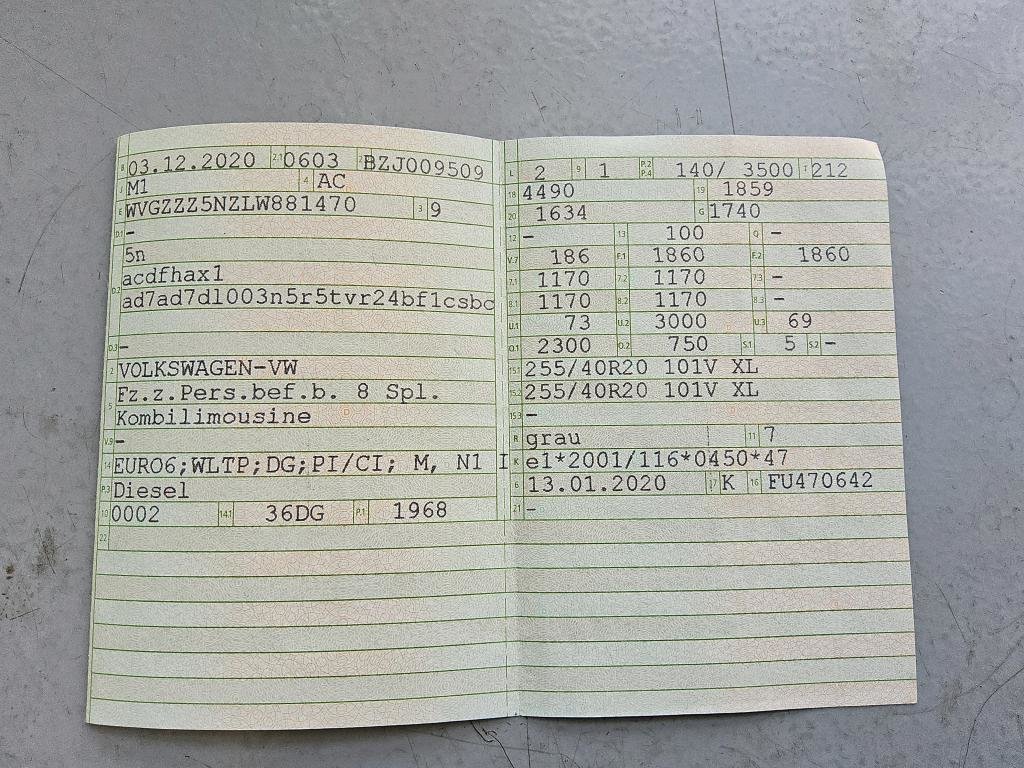 B 03.12.2020 2.1 0603 2.2 BZJ009509
J M1 4 AC
E WVGZZZ5NZLW881470 3 9
D.1 -
5n
D.2 acdfhax1
ad7ad7dl003n5r5tvr24bf1csbc
D.3 -
2 VOLKSWAGEN-VW
5 Fz.z.Pers.bef.b. 8 Spl.
Kombilimousine
V.9 -
14 EURO6;WLTP;DG;PI/CI; M, N1 I
P.3 Diesel
10 0002 14.1 36DG P.1 1968
22
L 2 9 1 P.2 P.4 140/ 3500 T 212
18 4490 19 1859
20 1634 G 1740
12 - 13 100 Q -
V.7 186 F.1 1860 F.2 1860
7.1 1170 7.2 1170 7.3 -
8.1 1170 8.2 1170 8.3 -
U.1 73 U.2 3000 U.3 69
O.1 2300 O.2 750 S.1 5 S.2 -
15.1 255/40R20 101V XL
15.2 255/40R20 101V XL
15.3 -
R grau 11 7
K e1*2001/116*0450*47
6 13.01.2020 17 K 16 FU470642
21 -